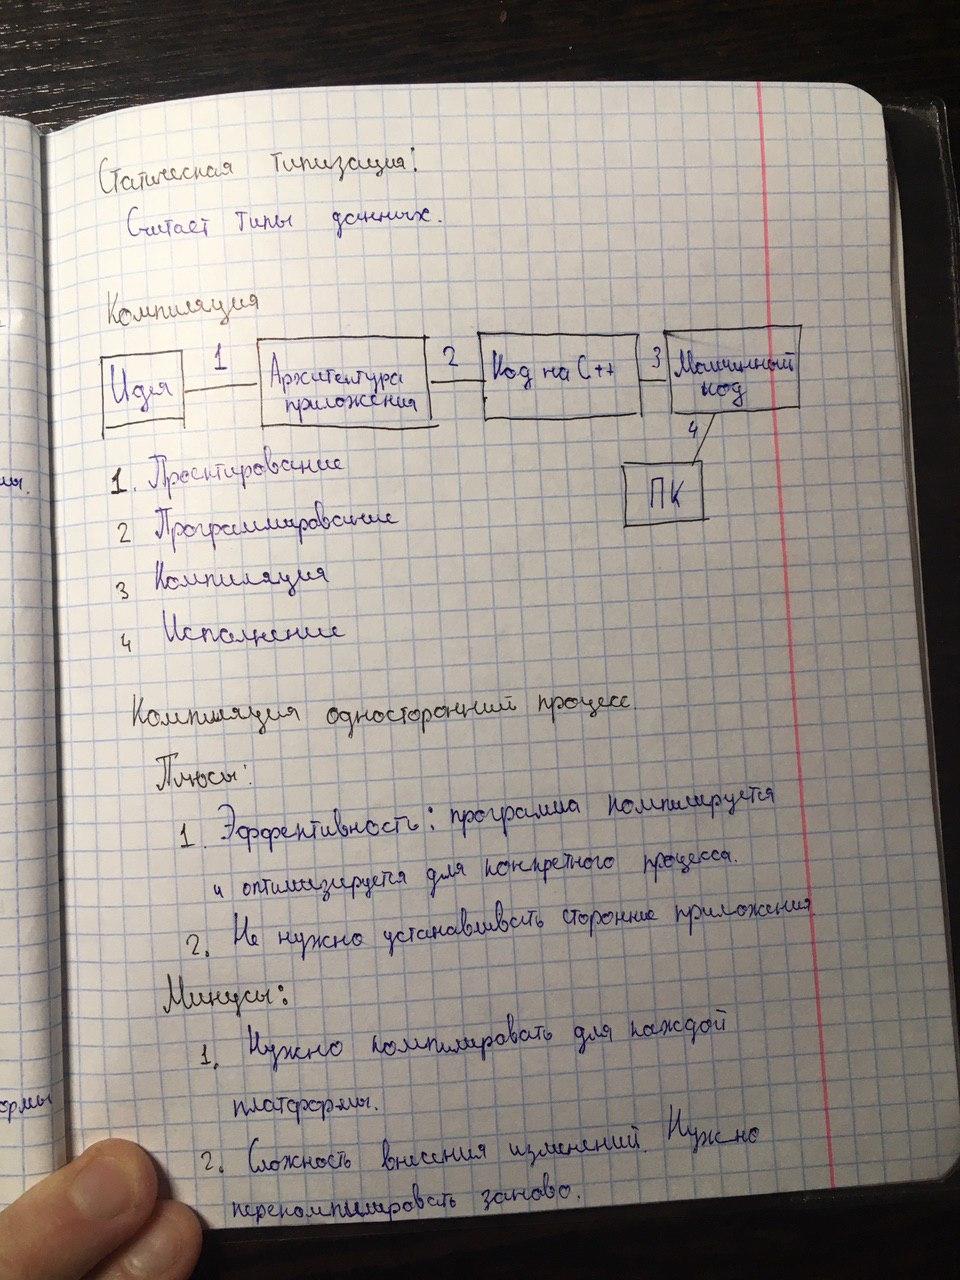 Статическая типизация:
Считает типы данных.
Компиляция
Идея
1
Архитектура
приложения
2
Код на С++
3
Машинный
код
4
ПК
1. Проектирование
2 Программирование
3 Компиляция
4 Исполнение
Компиляция односторонний процесс.
Плюсы:
1. Эффективность: программа компилируется
и оптимизируется для конкретного процесса.
2. Не нужно устанавливать сторонние приложения
Минусы:
1. Нужно компилировать для каждой
платформы.
2. Сложность внесения изменений. Нужно
перекомпилировать заново.